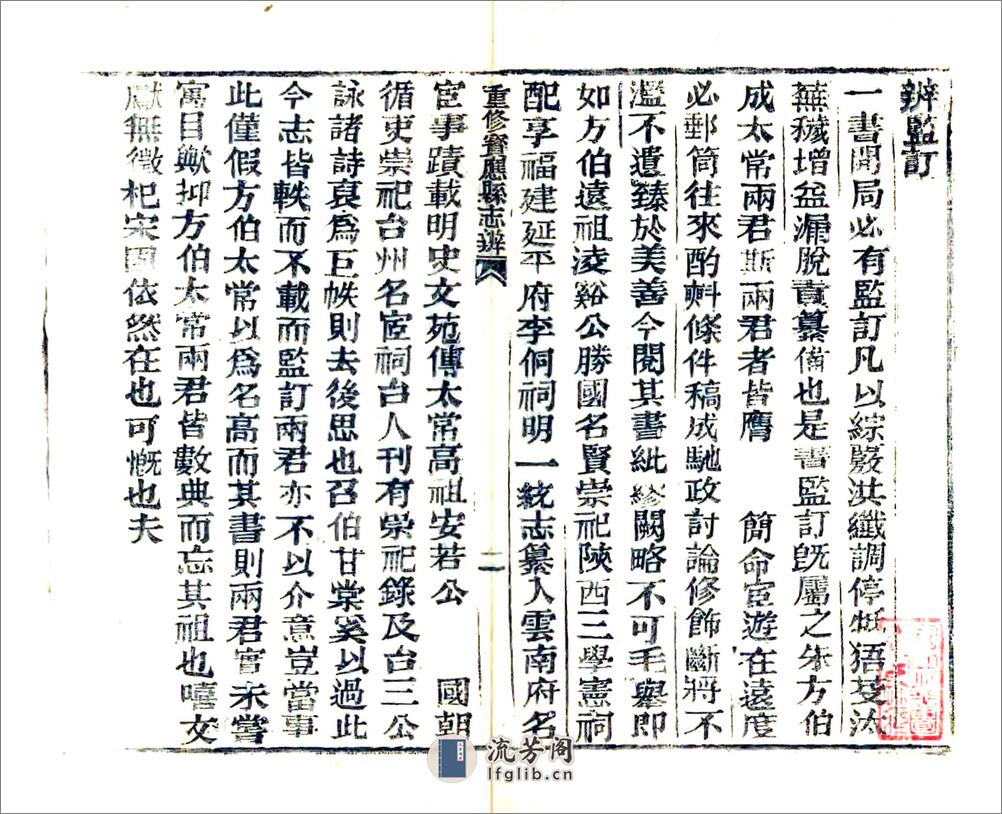 辨監訂
一書開局必有監訂凡以綜覈洪纖調停牴牾芟汰
蕪穢增益漏脫責纂脩也是書監訂旣屬之朱方伯
成太常兩君斯兩君者皆膺 簡命宦遊在遠度
必郵筒往來酌斟條件稿成馳政討論修飾斷將不
濫不遺臻於美善今閱其書紕繆闕略不可毛舉即
如方伯遠祖凌谿公勝國名賢崇祀陝西三學憲祠
配享福建延平府李侗祠明一統志纂入雲南府名
重修寶應縣志辨 二
宦事蹟載明史文苑傳太常高祖安若公 國朝
循吏崇祀台州名宦祠台人刊有崇祀錄及台三公
詠諸詩裒爲巨帙則去後思也召伯甘棠奚以過此
今志皆軼而不載而監訂兩君亦不以介意豈當事
此僅假方伯太常以爲名高而其書則兩君實未嘗
寓目歟抑方伯太常兩君皆數典而忘其祖也嘻文
獻無徵杞宋固依然在也可慨也夫
流芳阁
lfglib.cn